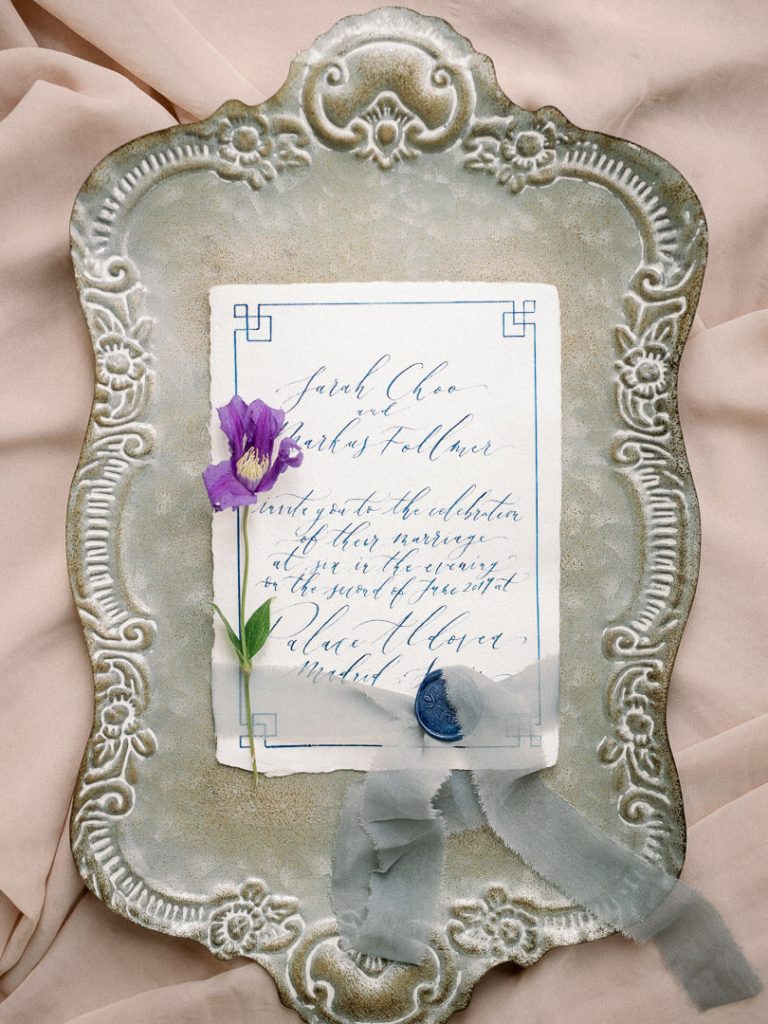 Sarah Choo
and
Markus Follmer
invite you to the celebration
of their marriage
at six in the evening
on the second of June 2019 at
Palace Aldovea
Madrid